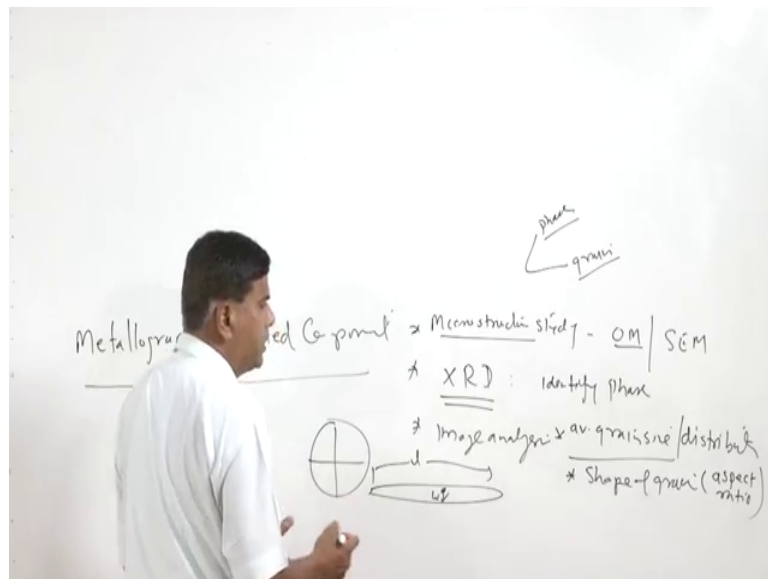 phase
grain
Metallogra ed Component
* Microstructure study - OM / SEM
* XRD : Identify phase
* Image analysis * av. grain size / distribut
* Shape of grain (aspect ratio)
d